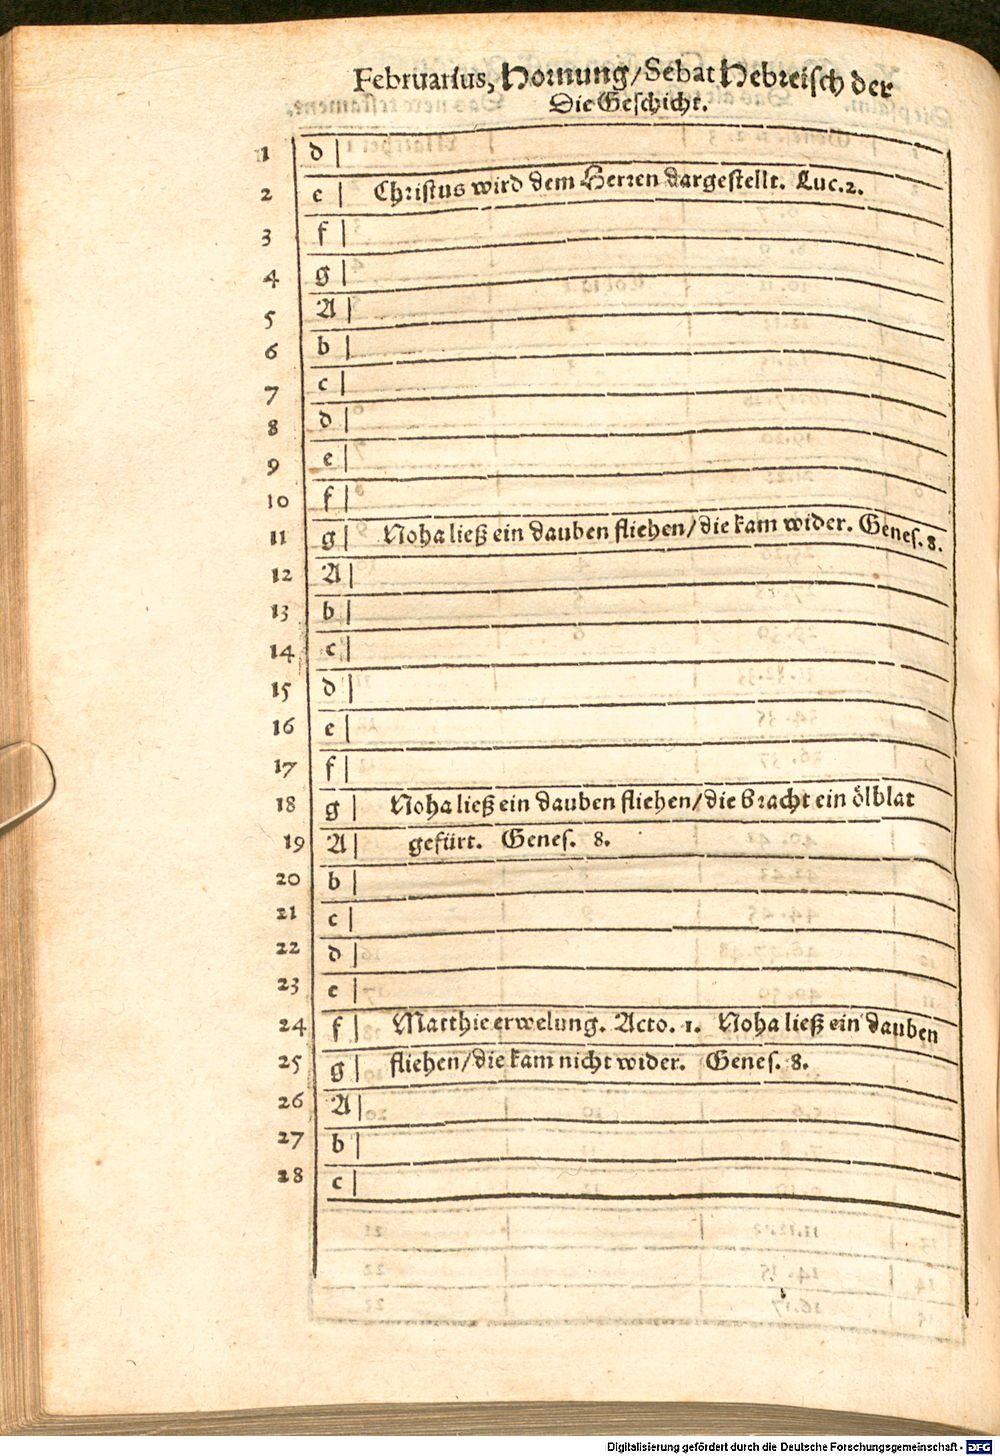 Februarius, Hornung/Sebat Hebreisch der
Die Geschicht.
1 d
2 e Christus wird dem Herren dargestellt. Luc.2.
3 f
4 g
5 A
6 b
7 c
8 d
9 e
10 f
11 g Noha ließ ein dauben fliehen/die kam wider. Genes. 8.
12 A
13 b
14 c
15 d
16 e
17 f
18 g Noha ließ ein dauben fliehen/die bracht ein ölblat
19 A gefürt. Genes. 8.
20 b
21 c
22 d
23 e
24 f Matthie erwelung. Acto. 1. Noha ließ ein dauben
25 g fliehen/die kam nicht wider. Genes. 8.
26 A
27 b
28 c
Digitalisierung gefördert durch die Deutsche Forschungsgemeinschaft - DFG